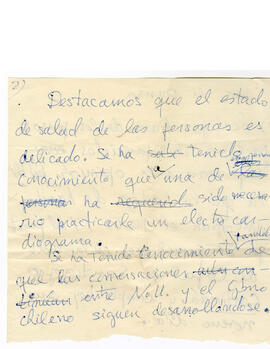 2)
Destacamos que el estado
de salud de las personas es
delicado. Se ha tenido
conocimiento que a una de las
personas ha sido necesa-
rio practicarle un electro car-
diograma.
Se ha tenido conocimiento de
que las conversaciones
entre Noll. y el Gbno
chileno siguen desarrollándose.